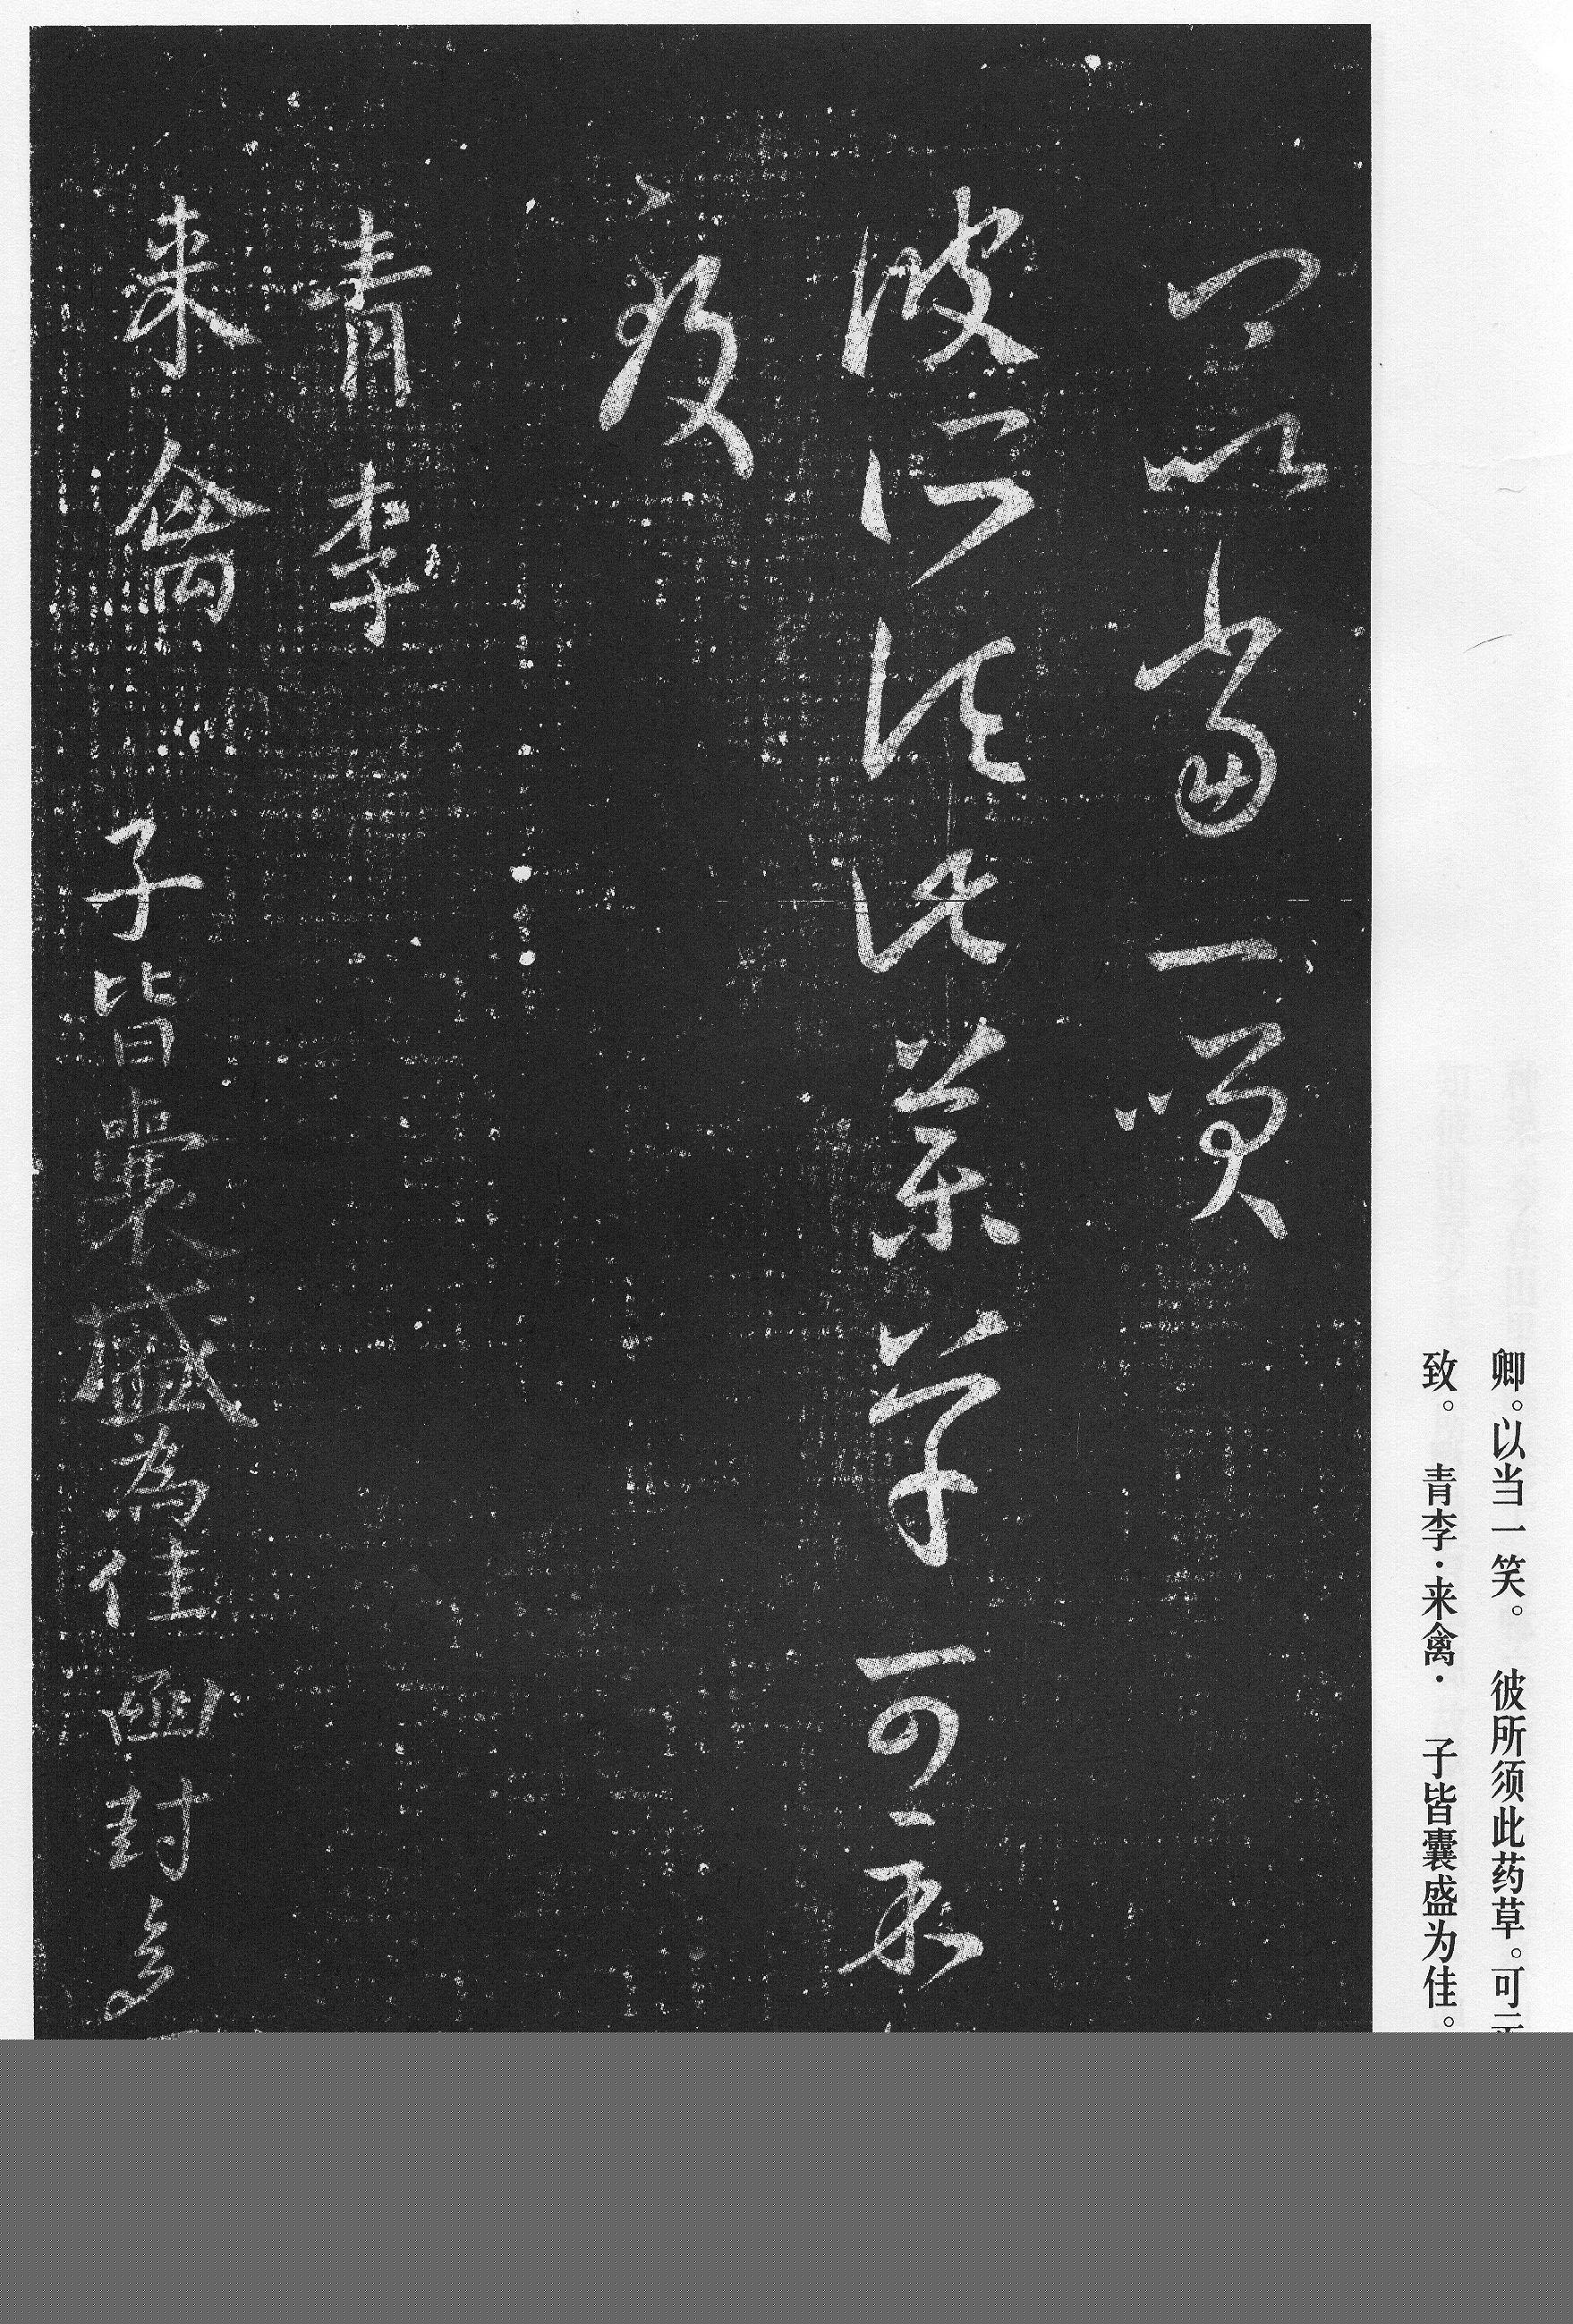 卿。以当一笑。 彼所须此药草。可
致。 青李·来禽· 子皆囊盛为佳。
卿以當一笑
彼所須此藥草可示
致
青李
来禽 子皆囊盛為佳函封多